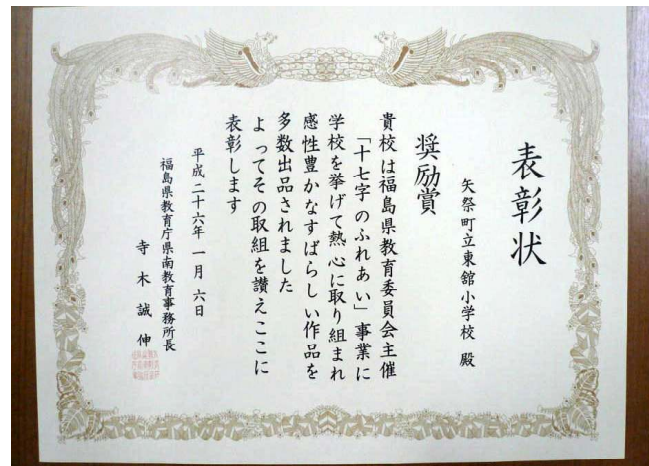 表彰状
矢祭町立東舘小学校 殿
奨励賞
貴校は福島県教育委員会主催
「十七字のふれあい」事業に
学校を挙げて熱心に取り組まれ
感性豊かなすばらしい作品を
多数出品されました
よってその取組を讃えここに
表彰します
平成二十六年一月六日
福島県教育庁県南教育事務所長
寺木誠伸